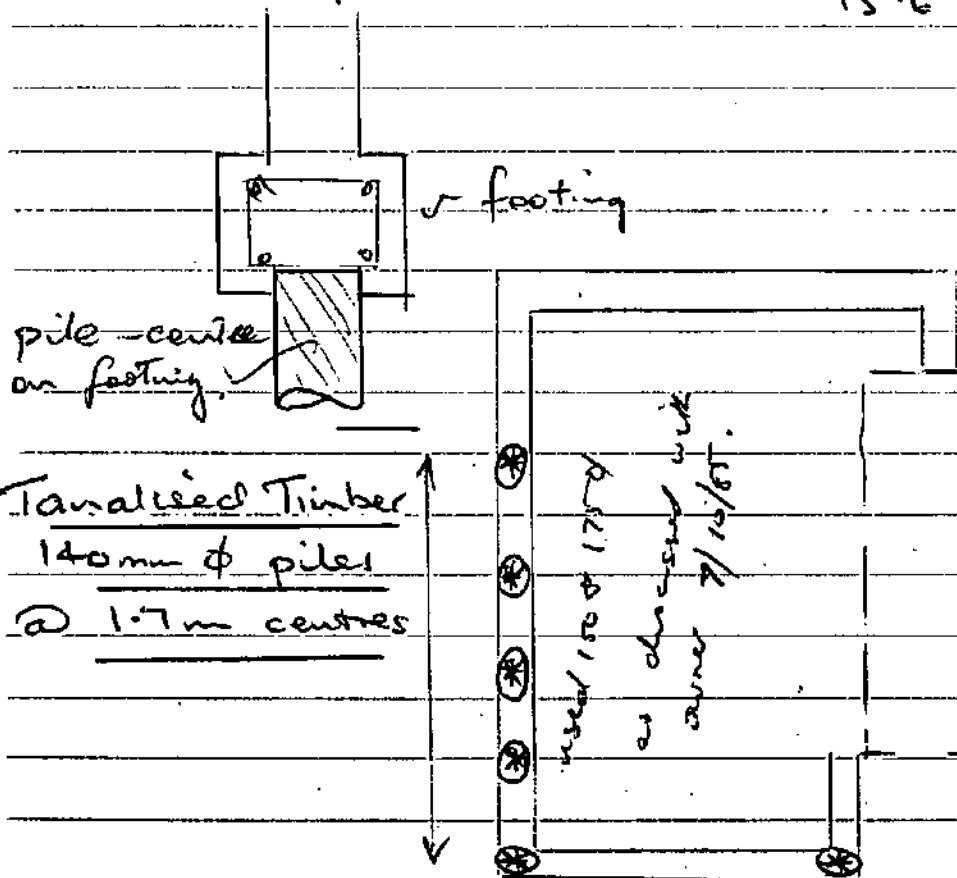 footing
pile - centre
on footing.
Tanalised Timber
140mm φ piles
@ 1.7m centres
used 150 & 175 φ
as discussed with
owner 7/10/85.